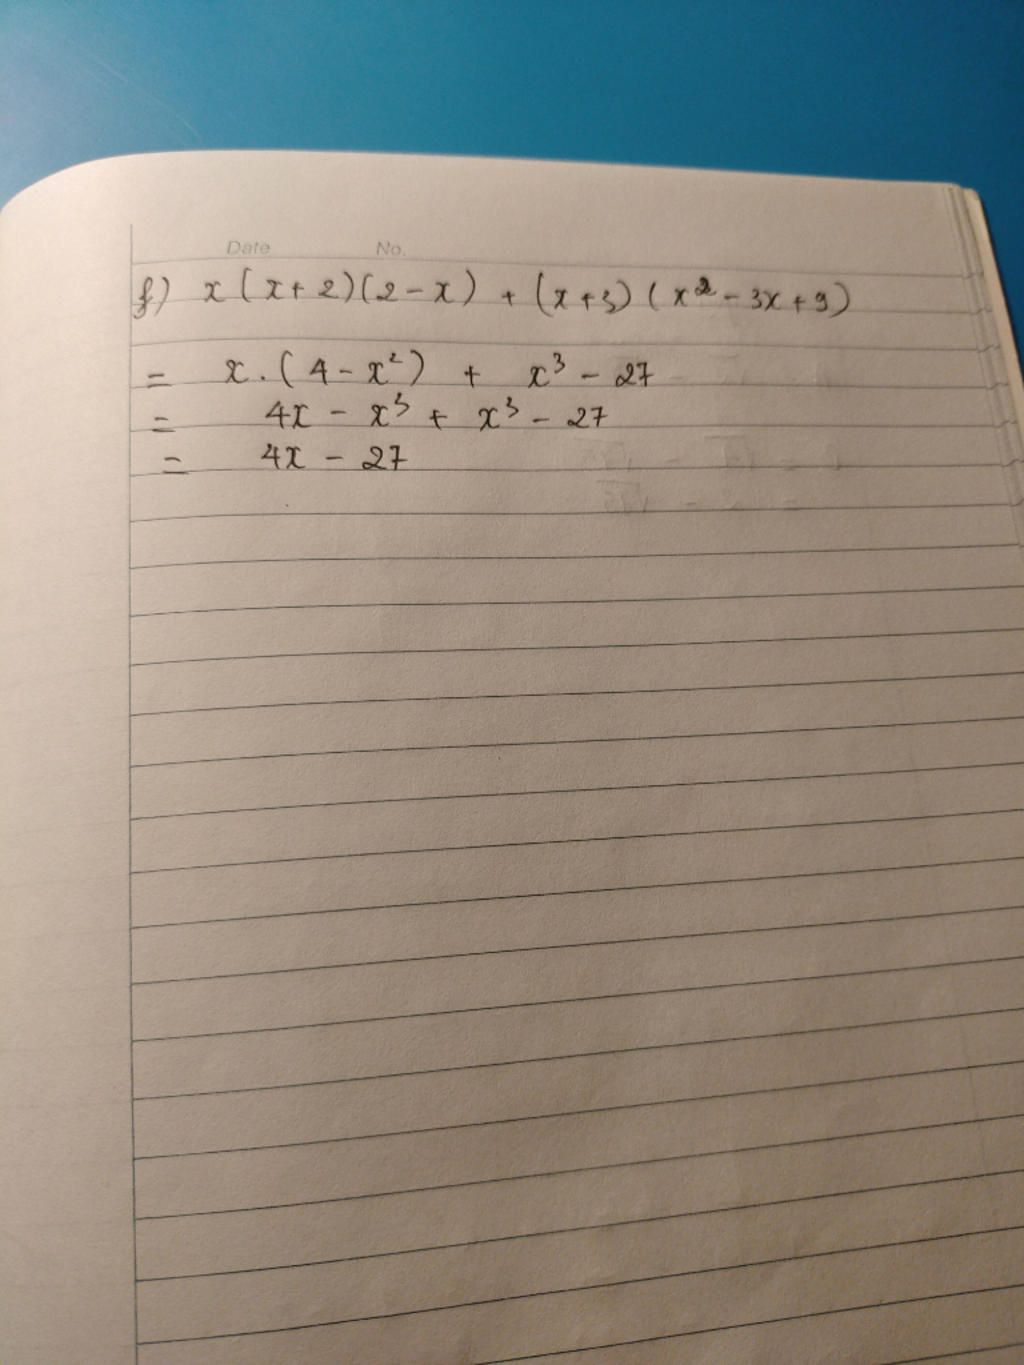 Date No.
f) x(x+2)(2-x) + (x+3)(x² - 3x + 9)
= x.(4 - x²) + x³ - 27
= 4x - x³ + x³ - 27
= 4x - 27